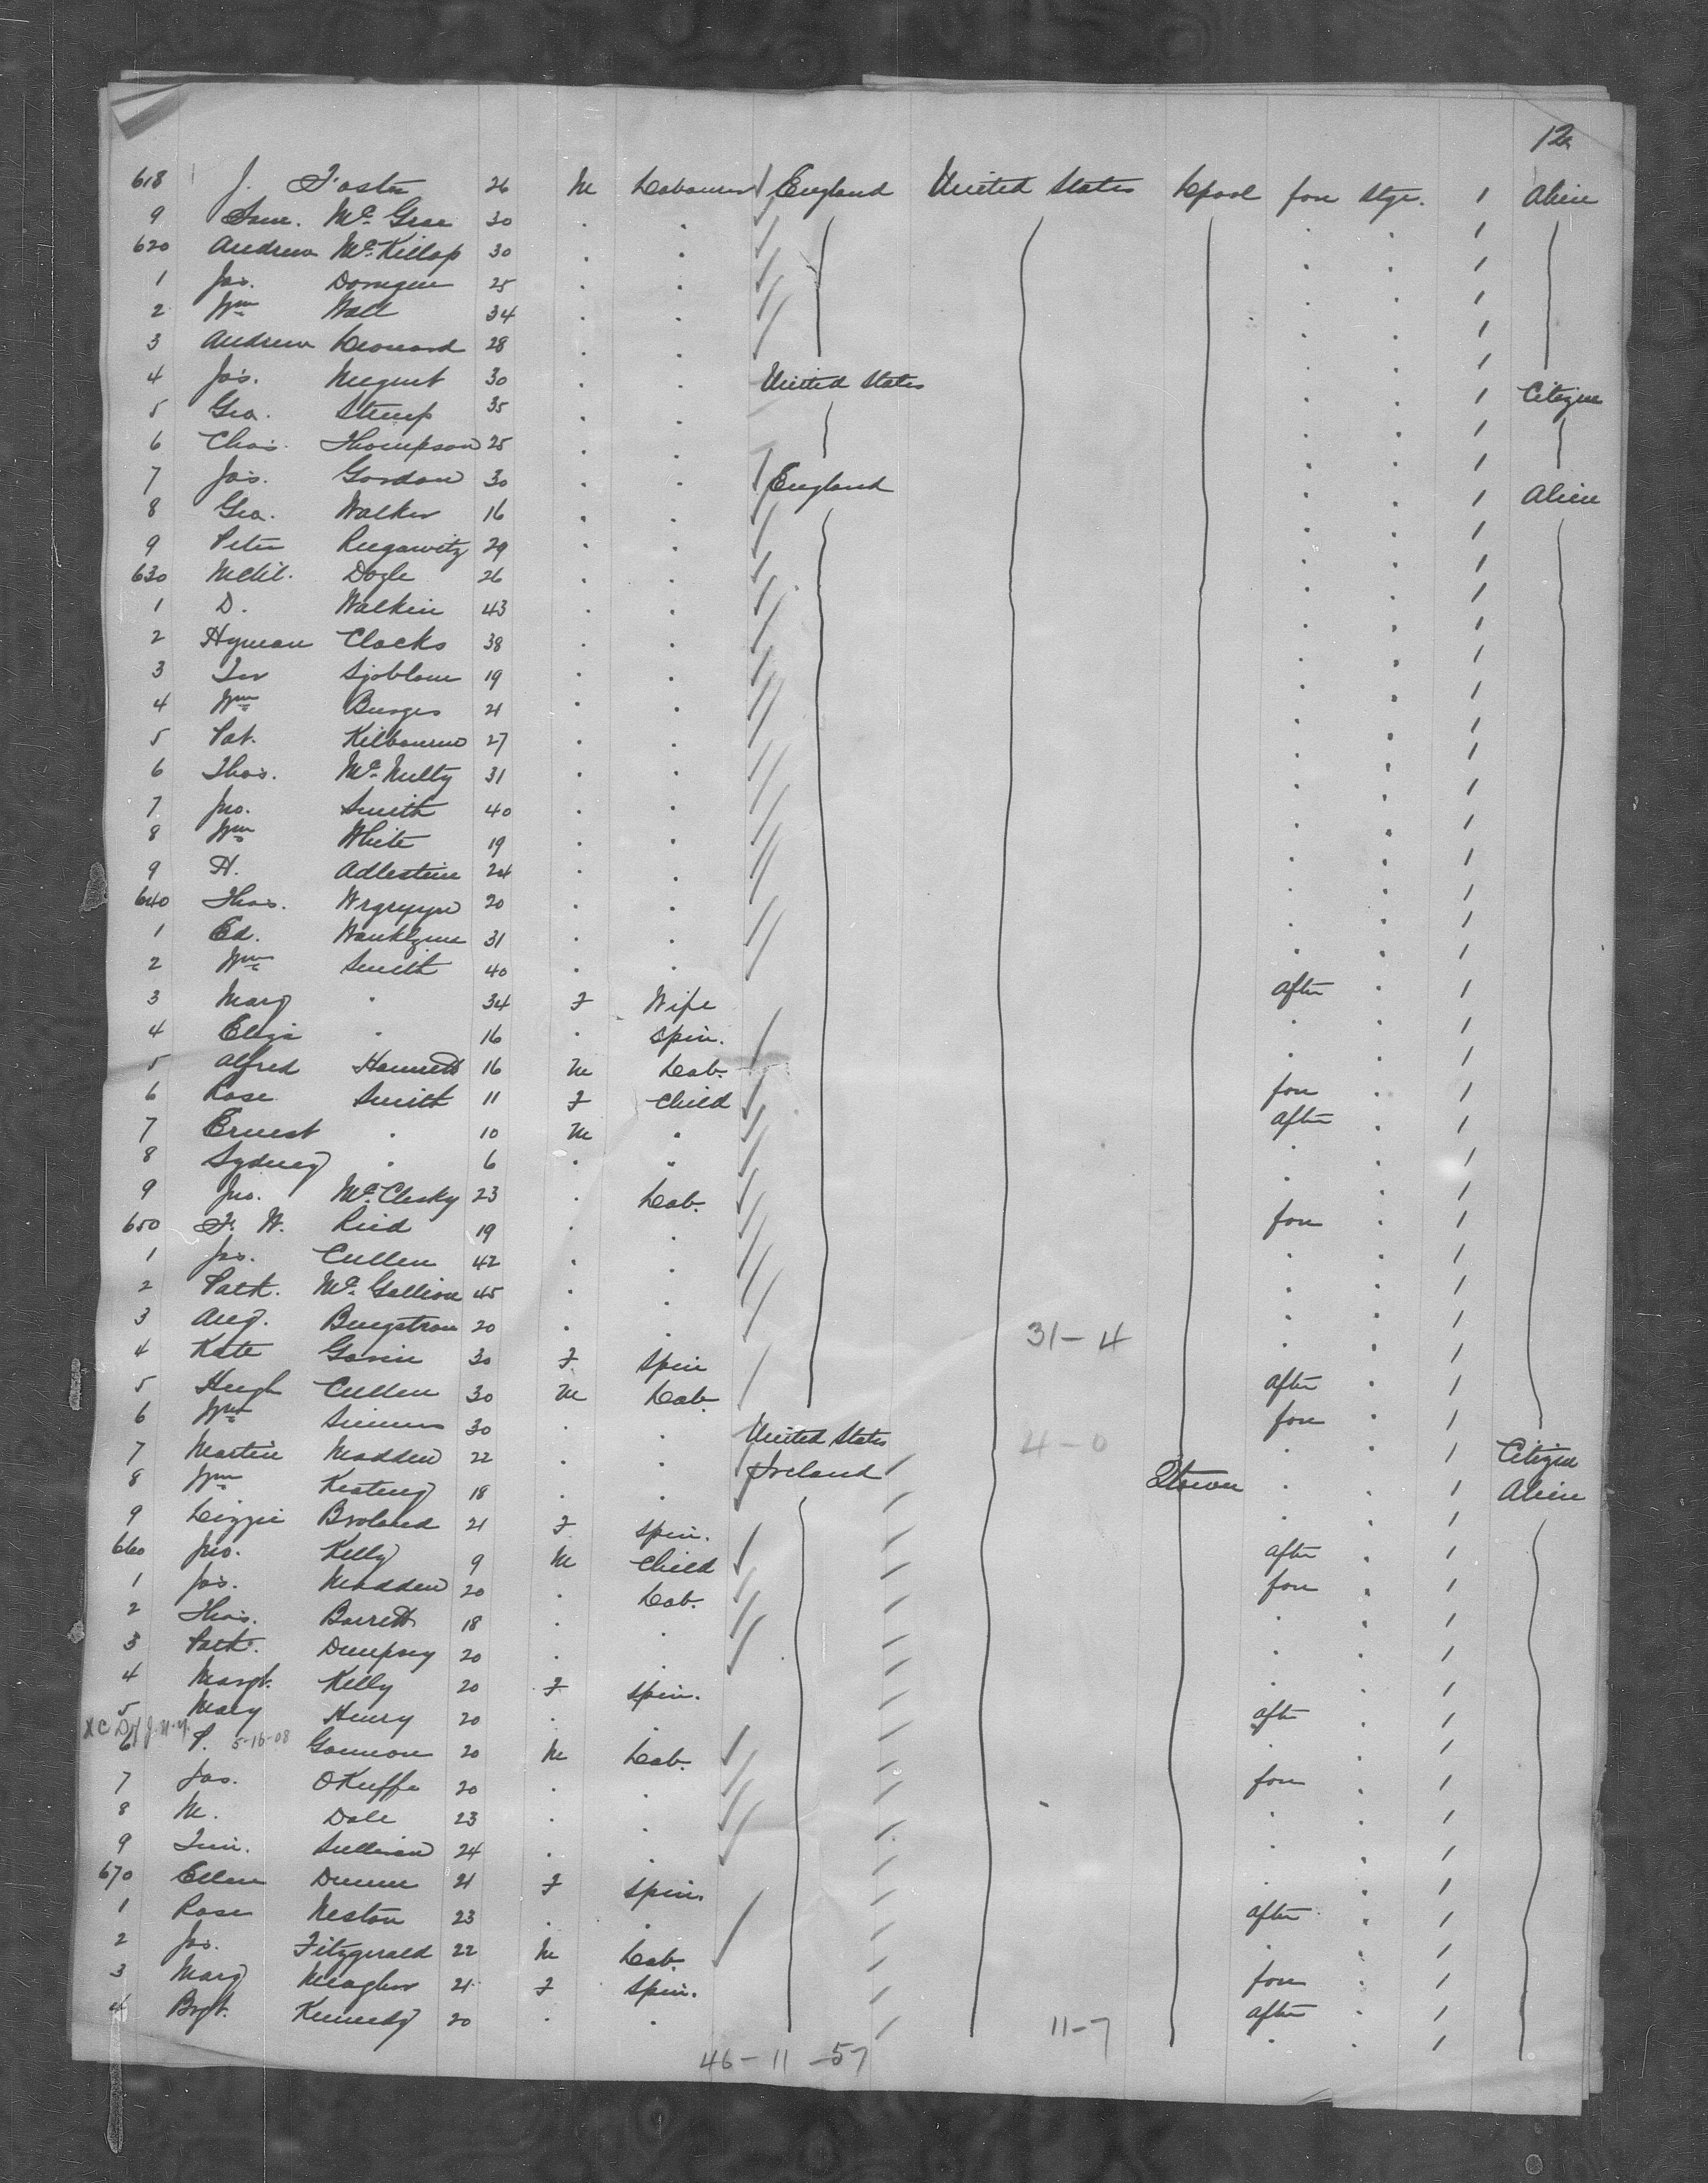 12
618 J. Foster 26 M Labourer England United States Lpool fore Stge. 1 Alien
9 Sam. McGrae 30 . . . . 1
620 Andrew McKillop 30 . . . . 1
1 Jas. 25 . . . . 1
2 Wm Wall 34 . . . . 1
3 Andrew Leonard 28 . . . . 1
4 Jas. Nugent 30 . . United States . . 1 Citizen
5 Geo. Stump 35 . . . . 1
6 Chas. Thompson 25 . . . . 1
7 Jas. Gordon 30 . . England . . 1 Alien
8 Geo. Walker 16 . . . . 1
9 Peter 29 . . . . 1
630 Mchl. Doyle 26 . . . . 1
1 D. Walkin 43 . . . . 1
2 Hyman Clocks 38 . . . . 1
3 Sjoblom 19 . . . . 1
4 Wm Burges 21 . . . . 1
5 Pat. Kilbourne 27 . . . . 1
6 Thos. McNulty 31 . . . . 1
7 Jno. Smith 40 . . . . 1
8 Wm White 19 . . . . 1
9 H. Adlestein 24 . . . . 1
640 Thos. 20 . . . . 1
1 Ed. Wanklyne 31 . . . . 1
2 Wm Smith 40 . . . . 1
3 Mary " 34 F Wife after . 1
4 Eliza " 16 . Spin. . . 1
5 Alfred Hannett 16 M Lab. fore . 1
6 Rose Smith 11 F Child after . 1
7 Ernest " 10 M " . . 1
8 Sydney " 6 . " . . 1
9 Jno. McClesky 23 . Lab. fore . 1
650 F. W. Reid 19 . . . . 1
1 Jas. Cullen 42 . . . . 1
2 Patk. McGallion 45 . . . . 1
3 Aug. Bengstrom 20 . . 31-4 . . 1
4 Kate Gavin 30 F Spin after . 1
5 Hugh Cullen 30 M Lab. fore . 1
6 Wm 30 . . United States 4-0 . . 1 Citizen
7 Martin Madden 22 . . Ireland Qtown . . 1 Alien
8 Wm Keating 18 . . . . 1
9 Lizzie 21 F Spin. after . 1
660 Jno. Kelly 9 M Child fore . 1
1 Jas. Madden 20 . Lab. . . 1
2 Thos. Barrett 18 . . . . 1
3 Patk. Dempsey 20 . . . . 1
4 Margt. Kelly 20 F Spin. after . 1
5 Mary Henry 20 . . . . 1
6 P. 5-16-08 Gannon 20 M Lab. fore . 1
7 Jas. OKeeffe 20 . . . . 1
8 M. Dale 23 . . . . 1
9 Tim. Sullivan 24 . . . . 1
670 Ellen Dunne 21 F Spin. after . 1
1 Rose Neston 23 . . . . 1
2 Jas. Fitzgerald 22 M Lab. fore . 1
3 Mary Meagher 21 F Spin. after . 1
4 Brgt. Kennedy 20 . . 11-7 . . 1
46-11-57